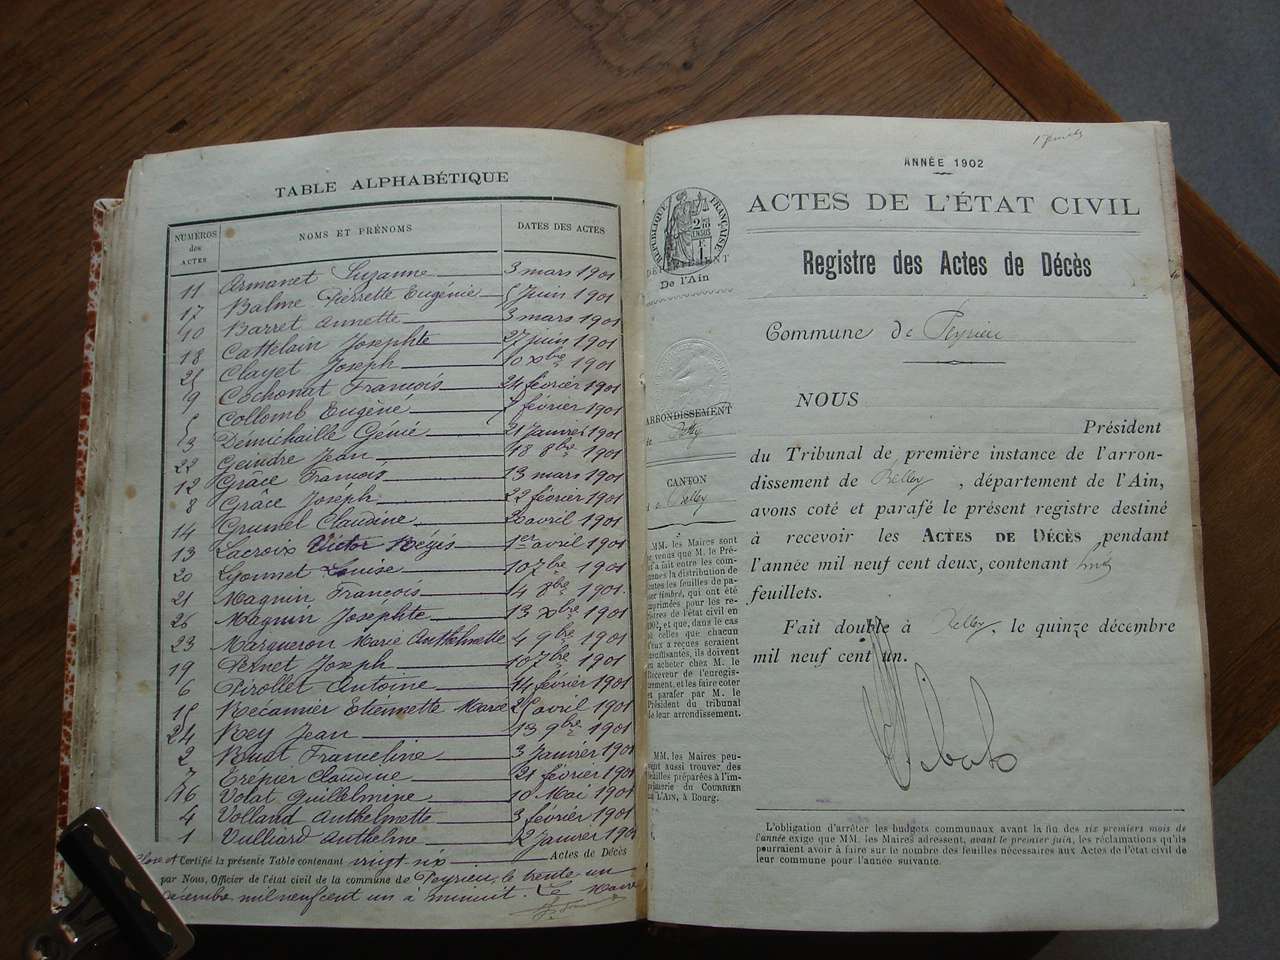 TABLE ALPHABÉTIQUE
NUMÉROS des ACTES NOMS ET PRÉNOMS DATES DES ACTES
11 Armanet Suzanne 3 mars 1901
17 Balme Pierrette Eugénie 5 Juin 1901
10 Barret Annette 3 mars 1901
18 Cattelain Josephte 27 juin 1901
25 Clayet Joseph 10 Xbre 1901
9 Cochonat Francois 24 février 1901
5 Collomb Eugéné 7 février 1901
3 Demichaille Génie 21 Janvier 1901
22 Geindre Jean 18 8bre 1901
12 Grâce Francois 13 mars 1901
8 Grâce Joseph 22 février 1901
14 Grumel Claudine 20 avril 1901
13 Lacroix Victor Régis 1er avril 1901
20 Lyonnet Louise 10 7bre 1901
21 Magnin François 14 8bre 1901.
26 Magnin Josephte 13 Xbre 1901
23 Margueron Marie Anthelmette 4 9bre 1901
19 Pernet Joseph 10 7bre 1901
6 Pirollet Antoine 14 février 1901
15 Récamier Etiennette Marie 25 avril 1901
24 Rey Jean 13 9bre 1901
2 Ruat Franceline 3 Janvier 1901
7 Trepier Claudine 21 février 1901
16 Volat Guillelmine 10 Mai 1901
4 Volland Anthelmette 3 février 1901
1 Vulliard Anthelme 2 Janvier 1901
Clore et Certifié la présente Table contenant vingt six Actes de Décès
par Nous, Officier de l'état civil de la commune de Peyrieu, le trente un
décembre mil neuf cent un à minuit. Le Maire
ANNÉE 1902
RÉPUBLIQUE FRANÇAISE
2/10 EN SUS
1 F
ACTES DE L'ÉTAT CIVIL
DÉPARTEMENT
De l'Ain
Registre des Actes de Décès
Commune de Peyrieu
ARRONDISSEMENT
de Belley
CANTON
de Belley
MM. les Maires sont
prévenus que M. le Pré-
fet a fait entre les com-
munes la distribution de
toutes les feuilles de pa-
pier timbré, qui ont été
imprimées pour les re-
gistres de l'état civil en
1902, et que, dans le cas
où celles que chacun
d'eux a reçues seraient
insuffisantes, ils doivent
en acheter chez M. le
Receveur de l'enregis-
trement, et les faire coter
et parafer par M. le
Président du tribunal
de leur arrondissement.
MM. les Maires peu-
vent aussi trouver des
feuilles préparées à l'im-
primerie du COURRIER
DE L'AIN, à Bourg.
NOUS
Président
du Tribunal de première instance de l'arron-
dissement de Belley, département de l'Ain,
avons coté et parafé le présent registre destiné
à recevoir les ACTES DE DÉCÈS pendant
l'année mil neuf cent deux, contenant huit
feuillets.
Fait double à Belley, le quinze décembre
mil neuf cent un.
L'obligation d'arrêter les budgets communaux avant la fin des six premiers mois de
l'année exige que MM. les Maires adressent, avant le premier juin, les réclamations qu'ils
pourraient avoir à faire sur le nombre des feuilles nécessaires aux Actes de l'état civil de
leur commune pour l'année suivante.